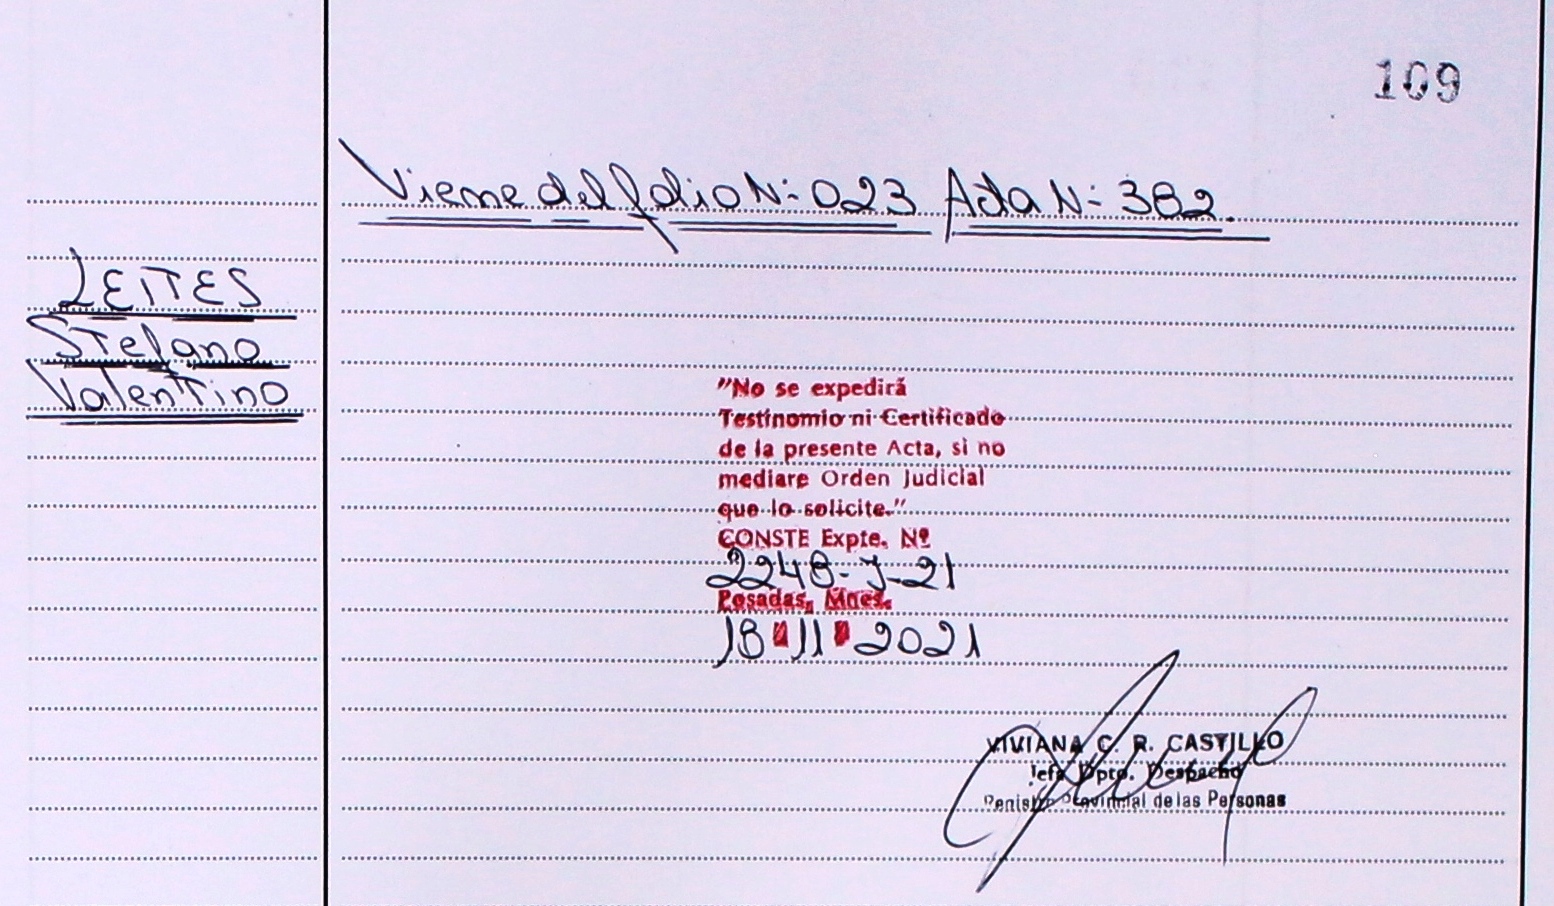 109
Viene del folio N: 023 Acta N: 382.
LEITES
Stefano
Valentino
"No se expedirá
Testinomio ni Certificado
de la presente Acta, si no
mediare Orden Judicial
que lo solicite."
CONSTE Expte. Nº
2248-J-21
Posadas, Mnes.
18 11 2021
VIVIANA C. R. CASTILLO
Jefa Dpto. Despacho
Registro Provincial de las Personas